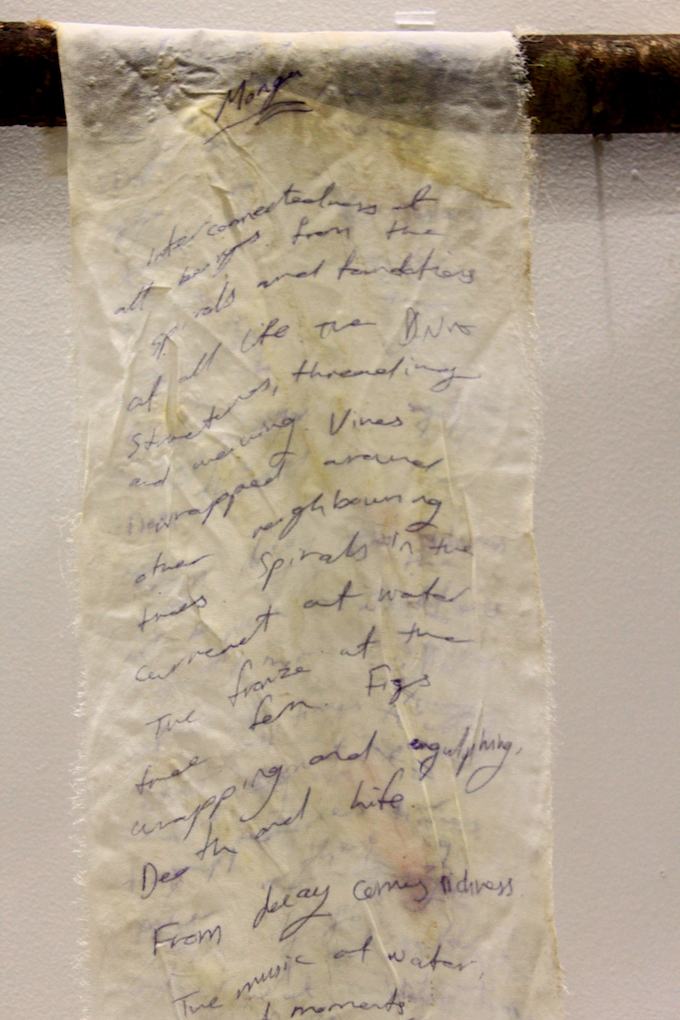 Interconnectedness of
all beings. from the
and foundations
of all life the DNA
Structures, threading
and weaving. Vines
wrapped around
other neighbouring
trees. Spirals in the
current of water
The fronze of the
tree fern. Figs
wrapping and engulphing.
Death and Life.
From decay comes richness
The music of water,
moments